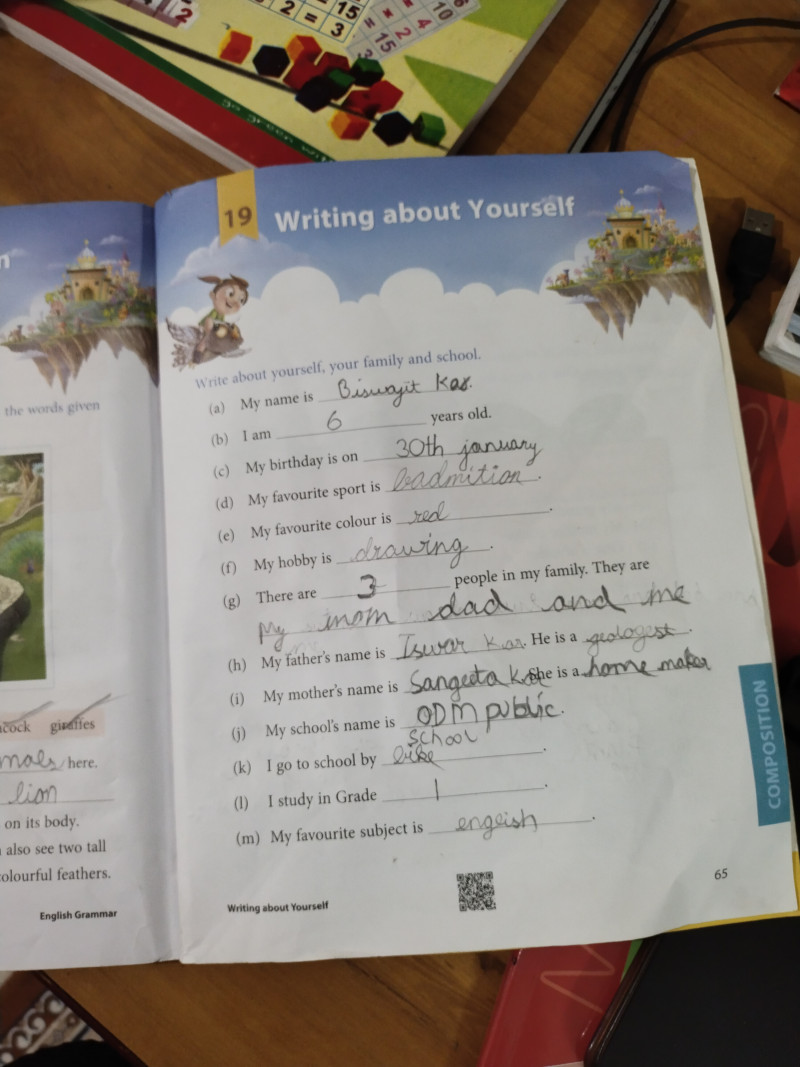 15
2 = 3
2
10
4
= 2
15
19 Writing about Yourself
the words given
Write about yourself, your family and school.
(a) My name is Biswajit Kar.
(b) I am 6 years old.
(c) My birthday is on 30th january
(d) My favourite sport is badmition.
(e) My favourite colour is red.
(f) My hobby is drawing.
(g) There are 3 people in my family. They are
My mom dad and me
(h) My father's name is Iswar Kar. He is a geologest.
(i) My mother's name is Sangeeta Kar She is a home maker
(j) My school's name is ODM public.
school
(k) I go to school by bike.
(l) I study in Grade 1.
(m) My favourite subject is engeish.
cock giraffes
mals here.
lion
on its body.
also see two tall
colourful feathers.
English Grammar
Writing about Yourself
65
COMPOSITION